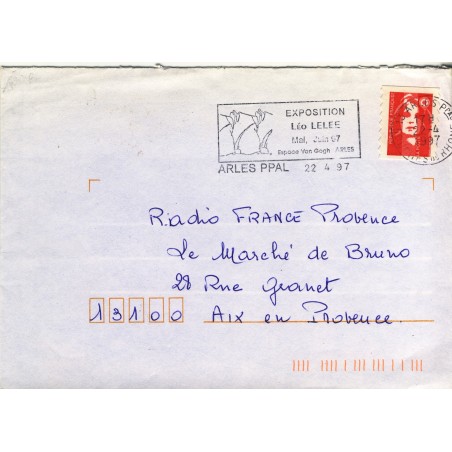 EXPOSITION
Léo LELEE
Mai, Juin 97
Espace Van Gogh ARLES
ARLES PPAL 22 4 97
Radio FRANCE Provence
Le Marché de Bruno
28 Rue Granet
13100 Aix en Provence